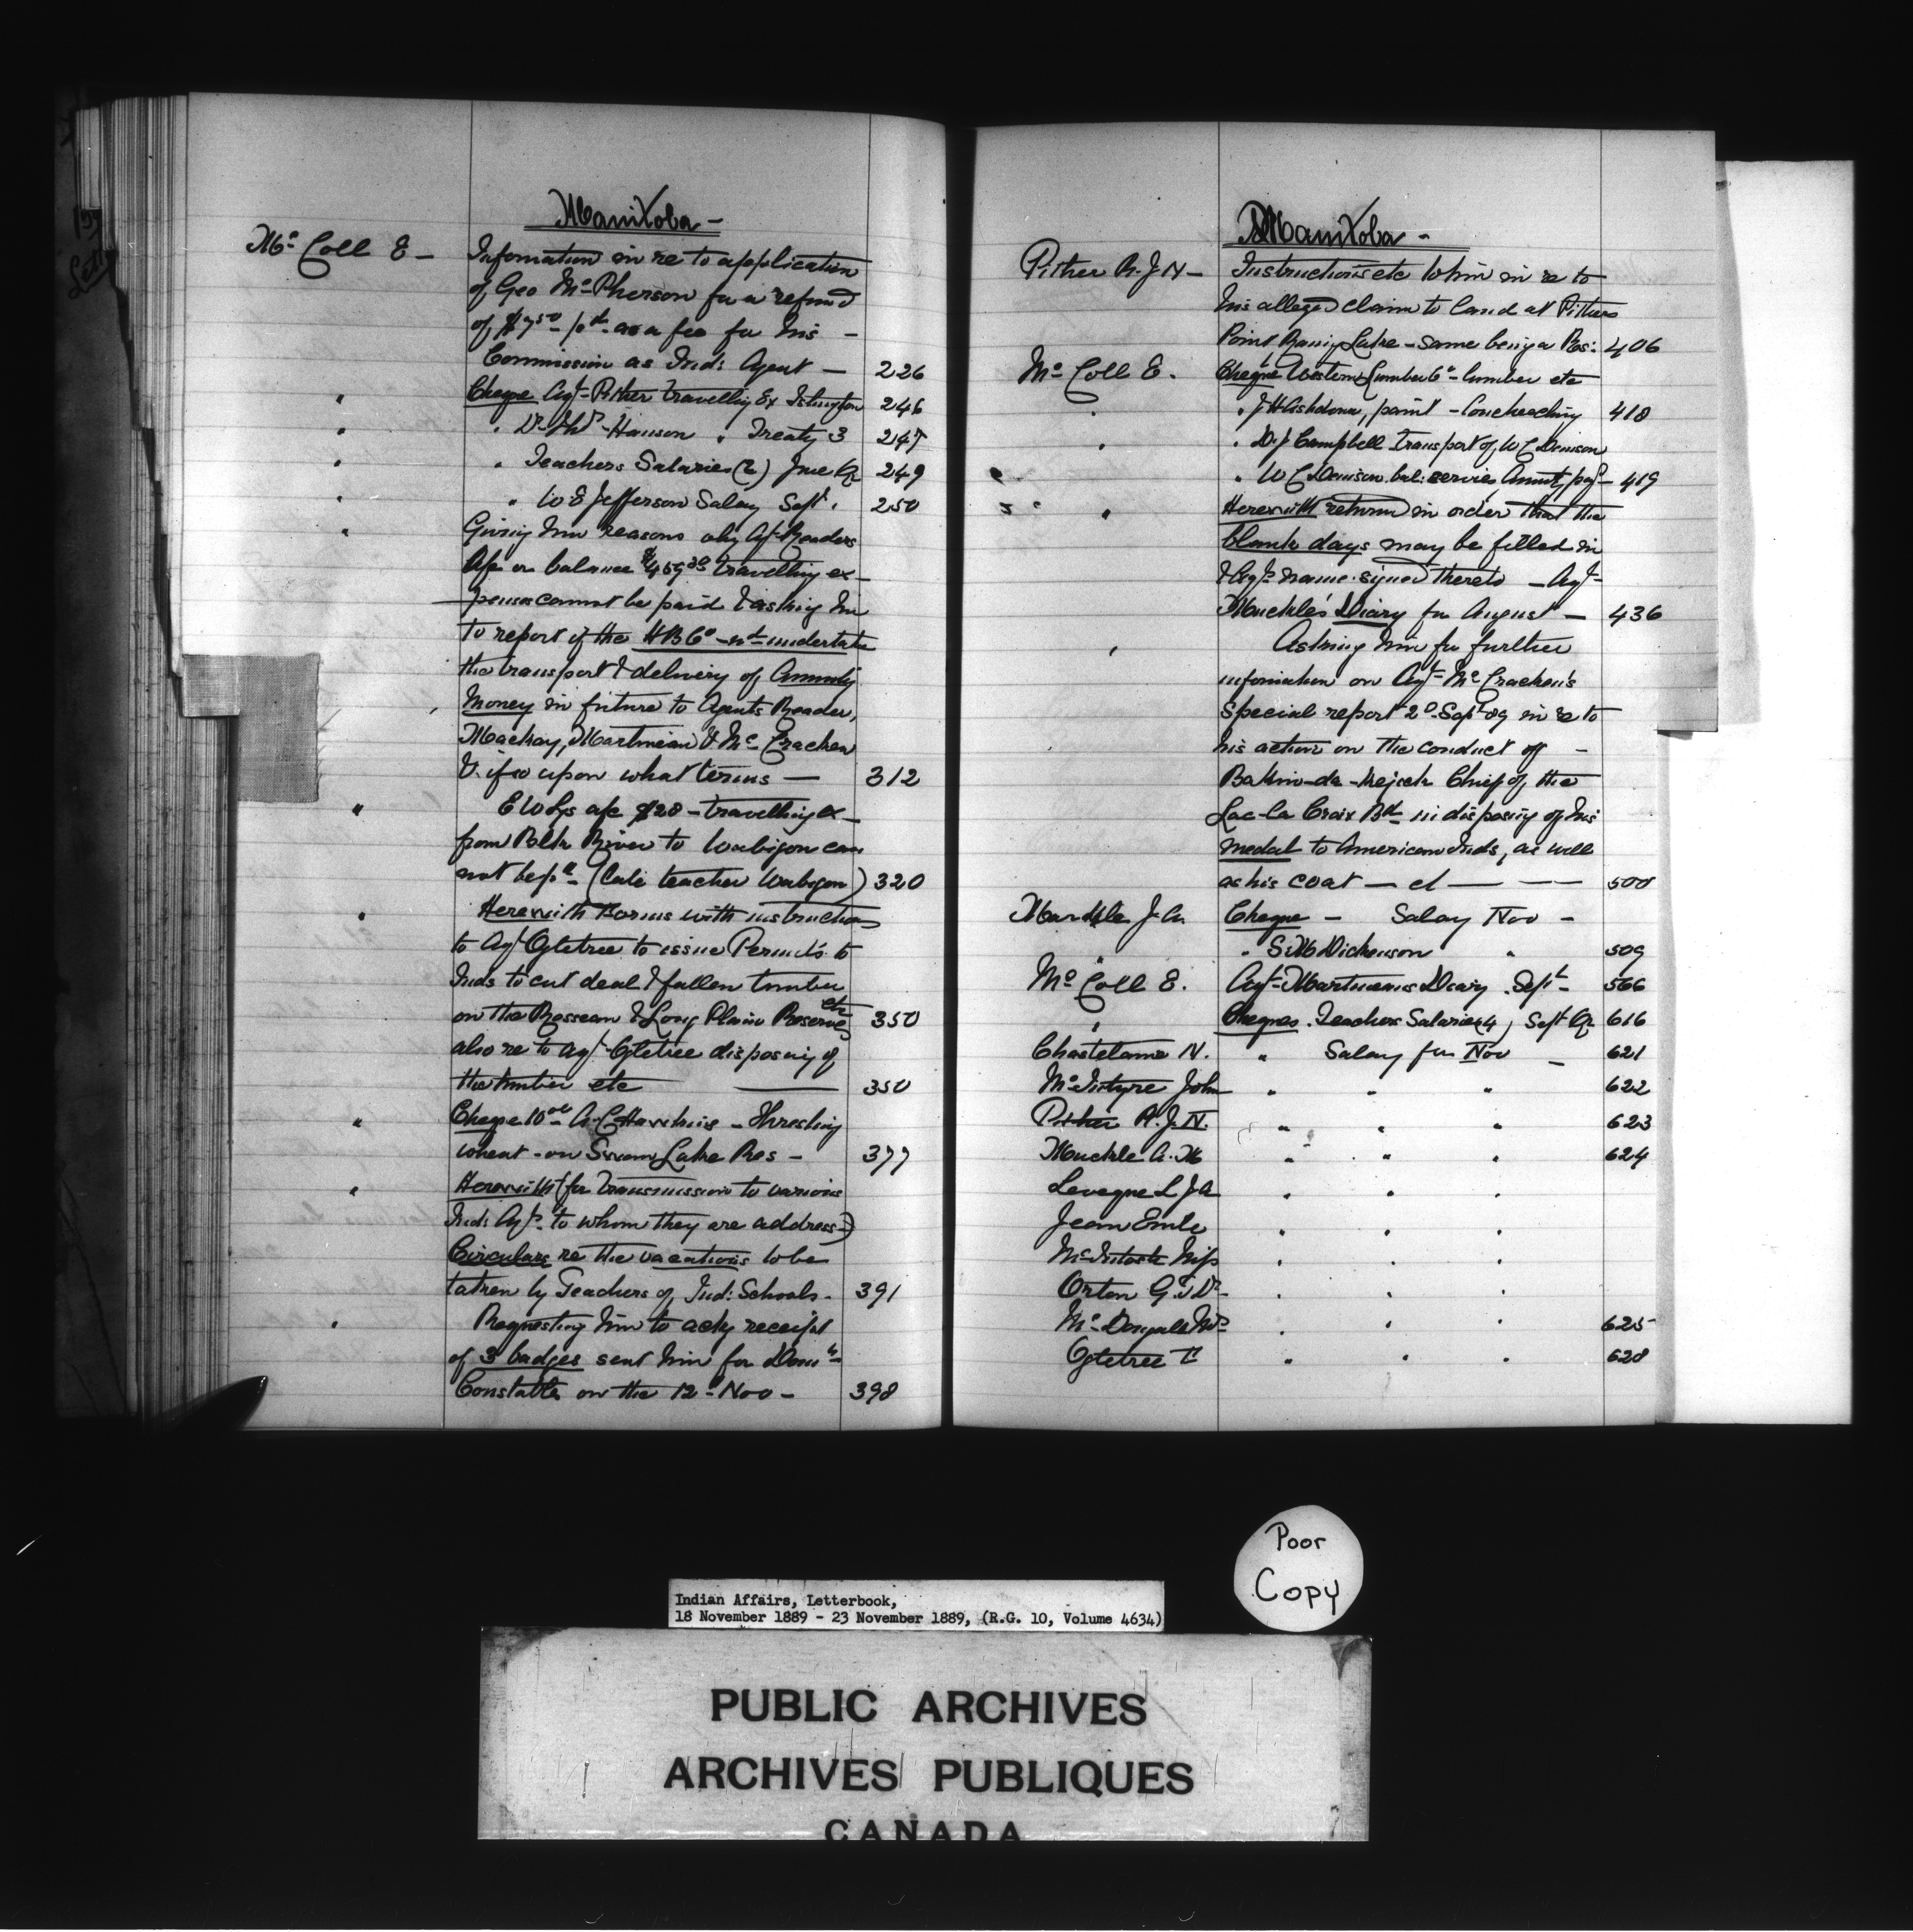 Manitoba -
Mc Coll E - Information in re to application
of Geo McPherson for a refund
of $7.50 pd as a fee for his -
Commission as Ind: Agent - 226
" Cheque Agt Pither travelling Ex 246
" " Dr Hanson " Treaty 3 247
" " Teachers Salaries (2) June Qr 249
" " W E Jefferson Salary Sept. 250
" Giving him reasons why Agt Readers
a/c on balance travelling ex-
penses cannot be paid & asking him
to report if the H B Co - undertake
the transport & delivery of Annuity
Money in future to Agents Reader,
Mackay, Martineau & McCracken
& if so upon what terms - 312
" a/c $28 - travelling ex -
from River to Wabigon can
not be pd - (late teacher Wabigon) 320
" Herewith Forms with instructions
to Agt Ogletree to issue Permits to
Inds to cut dead & fallen timber
on the Rosseau & Long Plain Reserve etc 350
also re to Agt Ogletree disposing of
the timber etc - 350
" Cheque A. C. Hawkins - Threshing
wheat - on Swan Lake Res - 377
" Herewith (for transmission to various
Ind: Agts to whom they are address-)
Circulars re the vacations to be
taken by Teachers of Ind: Schools - 391
" Requesting him to ack receipt
of 3 badges sent him for
Constables on the 12 - Nov - 398
Manitoba -
Pither R. J. N - Instructions etc to him in re to
his alleged claim to land at Pithers
Point Rainy Lake - same being a Res: 406
Mc Coll E. Cheque Western Lumber Co - lumber etc
" " J H Ashdown, paint - Couchiching 418
" " D. J Campbell transport of W C Denison
" W C Denison bal: services Annuity pay - 419
" Herewith return in order that the
blank days may be filled in
& Agts name signed thereto - Agt
Muckle's Diary for August - 436
" Asking him for further
information on Agt McCracken's
Special report 20 Sept 89 in re to
his action on the conduct of -
Chief of the
Lac-la Croix Bd in disposing of his
medal to American Inds, as well
as his coat - 500
Markle J. A. Cheque - Salary Nov -
" " S. M Dickenson " 509
Mc Coll E. Agt Martineaus Diary Sept - 566
" Cheques. Teachers Salaries (4) Sept Qr 616
Chastelaine N. " Salary for Nov - 621
McIntyre John " " " 622
Pither R. J. N. " " " 623
Muckle A. M " " " 624
Leveque L J A " " "
Jean Emle " " "
McIntosh Miss " " "
Orton G. T Dr " " "
" " " 625
Ogletree " " " 628
Poor
Copy
Indian Affairs, Letterbook,
18 November 1889 - 23 November 1889, (R.G. 10, Volume 4634)
PUBLIC ARCHIVES
ARCHIVES PUBLIQUES
CANADA